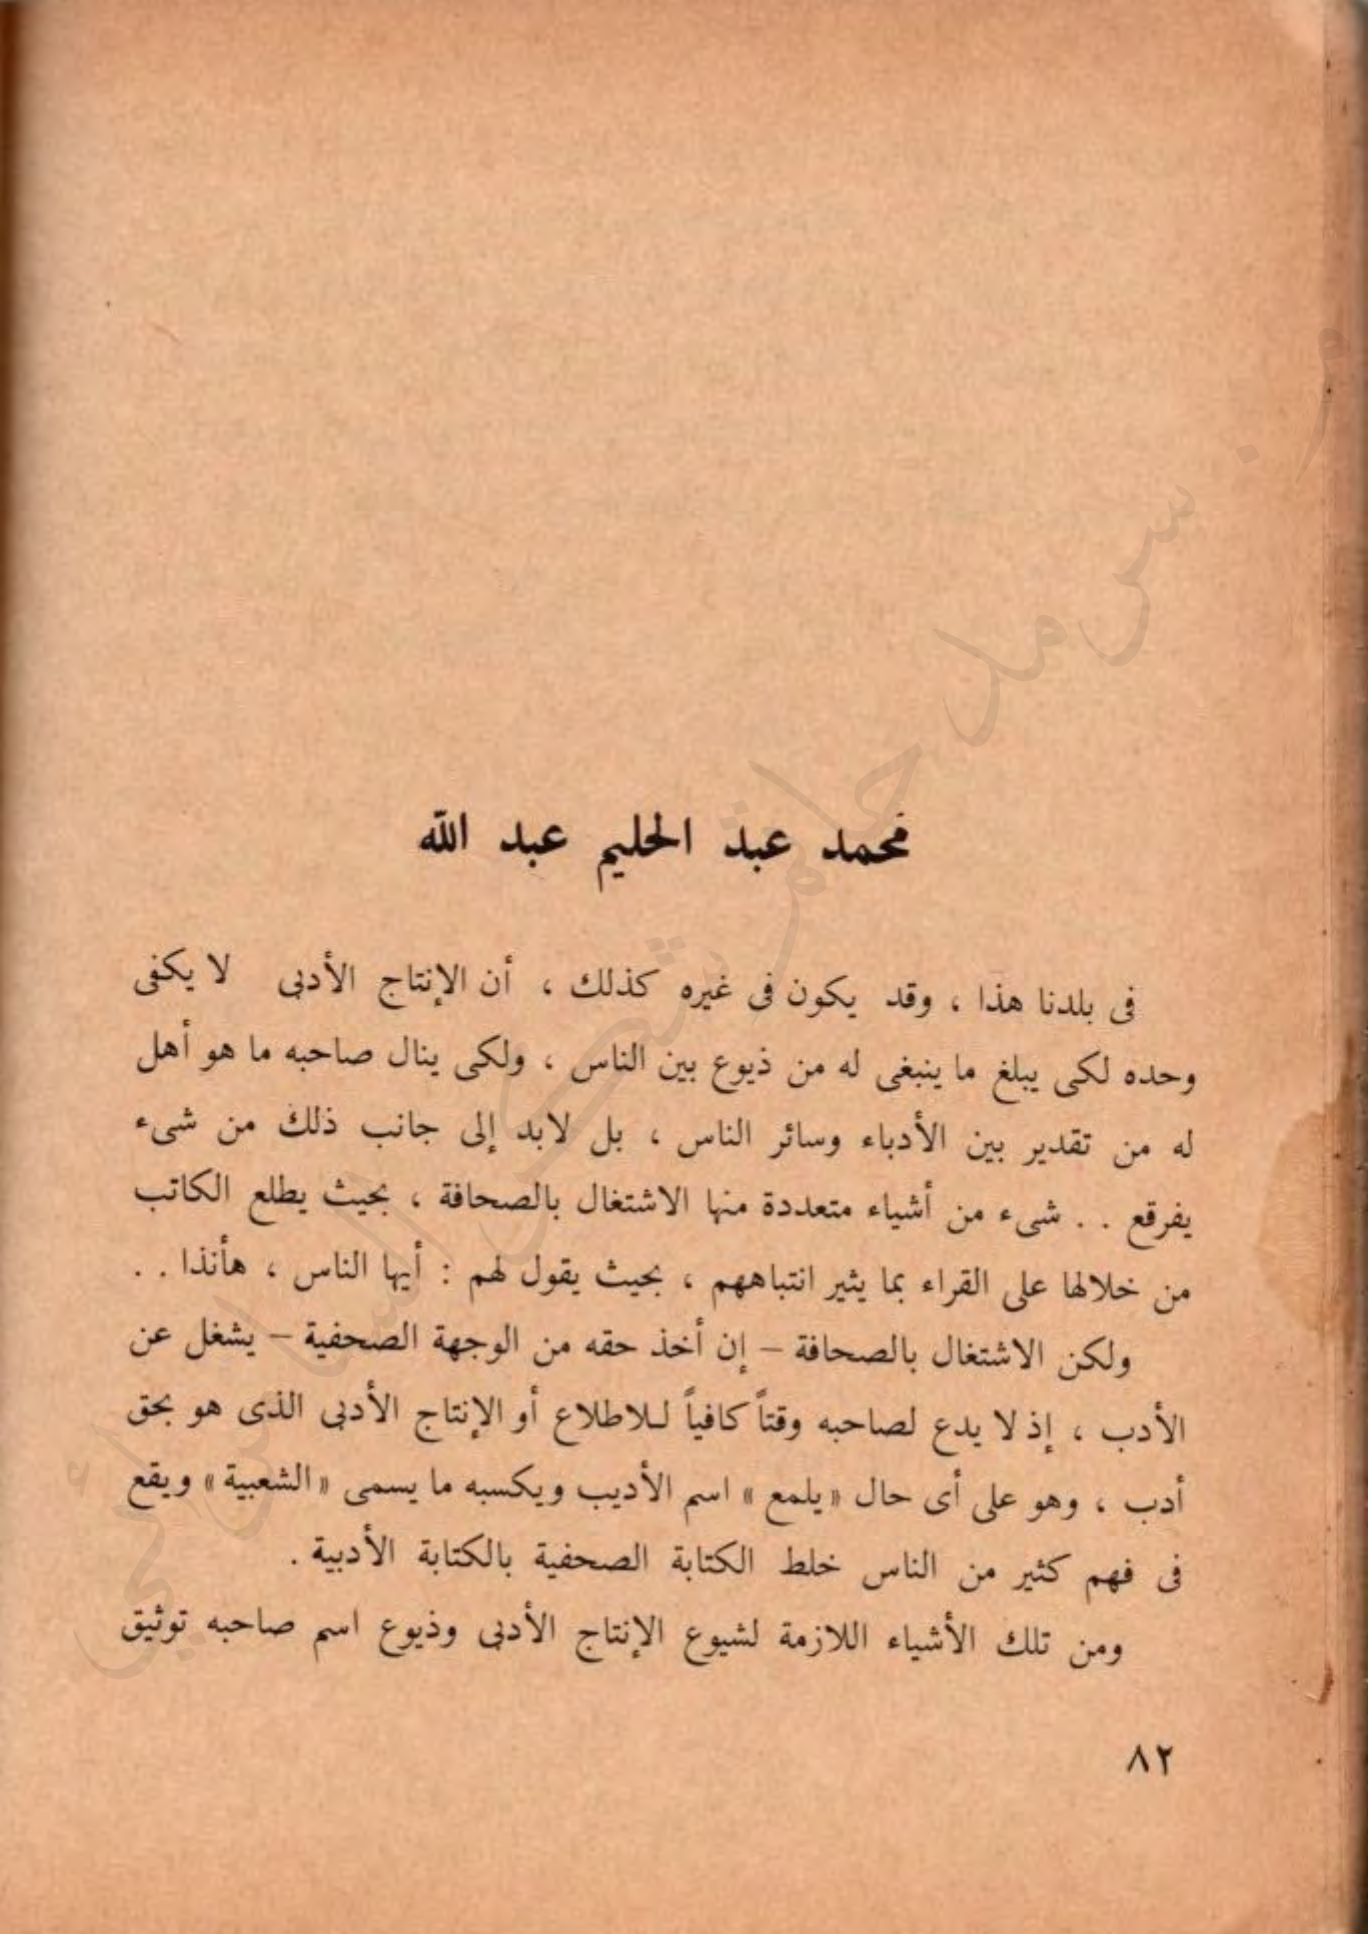 محمد عبد الحليم عبد الله
فى بلدنا هذا ، وقد يكون فى غيره كذلك ، أن الإنتاج الأدبى لا يكفى
وحده لكى يبلغ ما ينبغى له من ذيوع بين الناس ، ولكى ينال صاحبه ما هو أهل
له من تقدير بين الأدباء وسائر الناس ، بل لابد إلى جانب ذلك من شىء
يفرقع . . شىء من أشياء متعددة منها الاشتغال بالصحافة ، بحيث يطلع الكاتب
من خلالها على القراء بما يثير انتباههم ، بحيث يقول لهم : أيها الناس ، هأنذا . .
ولكن الاشتغال بالصحافة – إن أخذ حقه من الوجهة الصحفية – يشغل عن
الأدب ، إذ لا يدع لصاحبه وقتاً كافياً للاطلاع أو الإنتاج الأدبى الذى هو بحق
أدب ، وهو على أى حال « يلمع » اسم الأديب ويكسبه ما يسمى « الشعبية » ويقع
فى فهم كثير من الناس خلط الكتابة الصحفية بالكتابة الأدبية .
ومن تلك الأشياء اللازمة لشيوع الإنتاج الأدبى وذيوع اسم صاحبه توثيق
٨٢